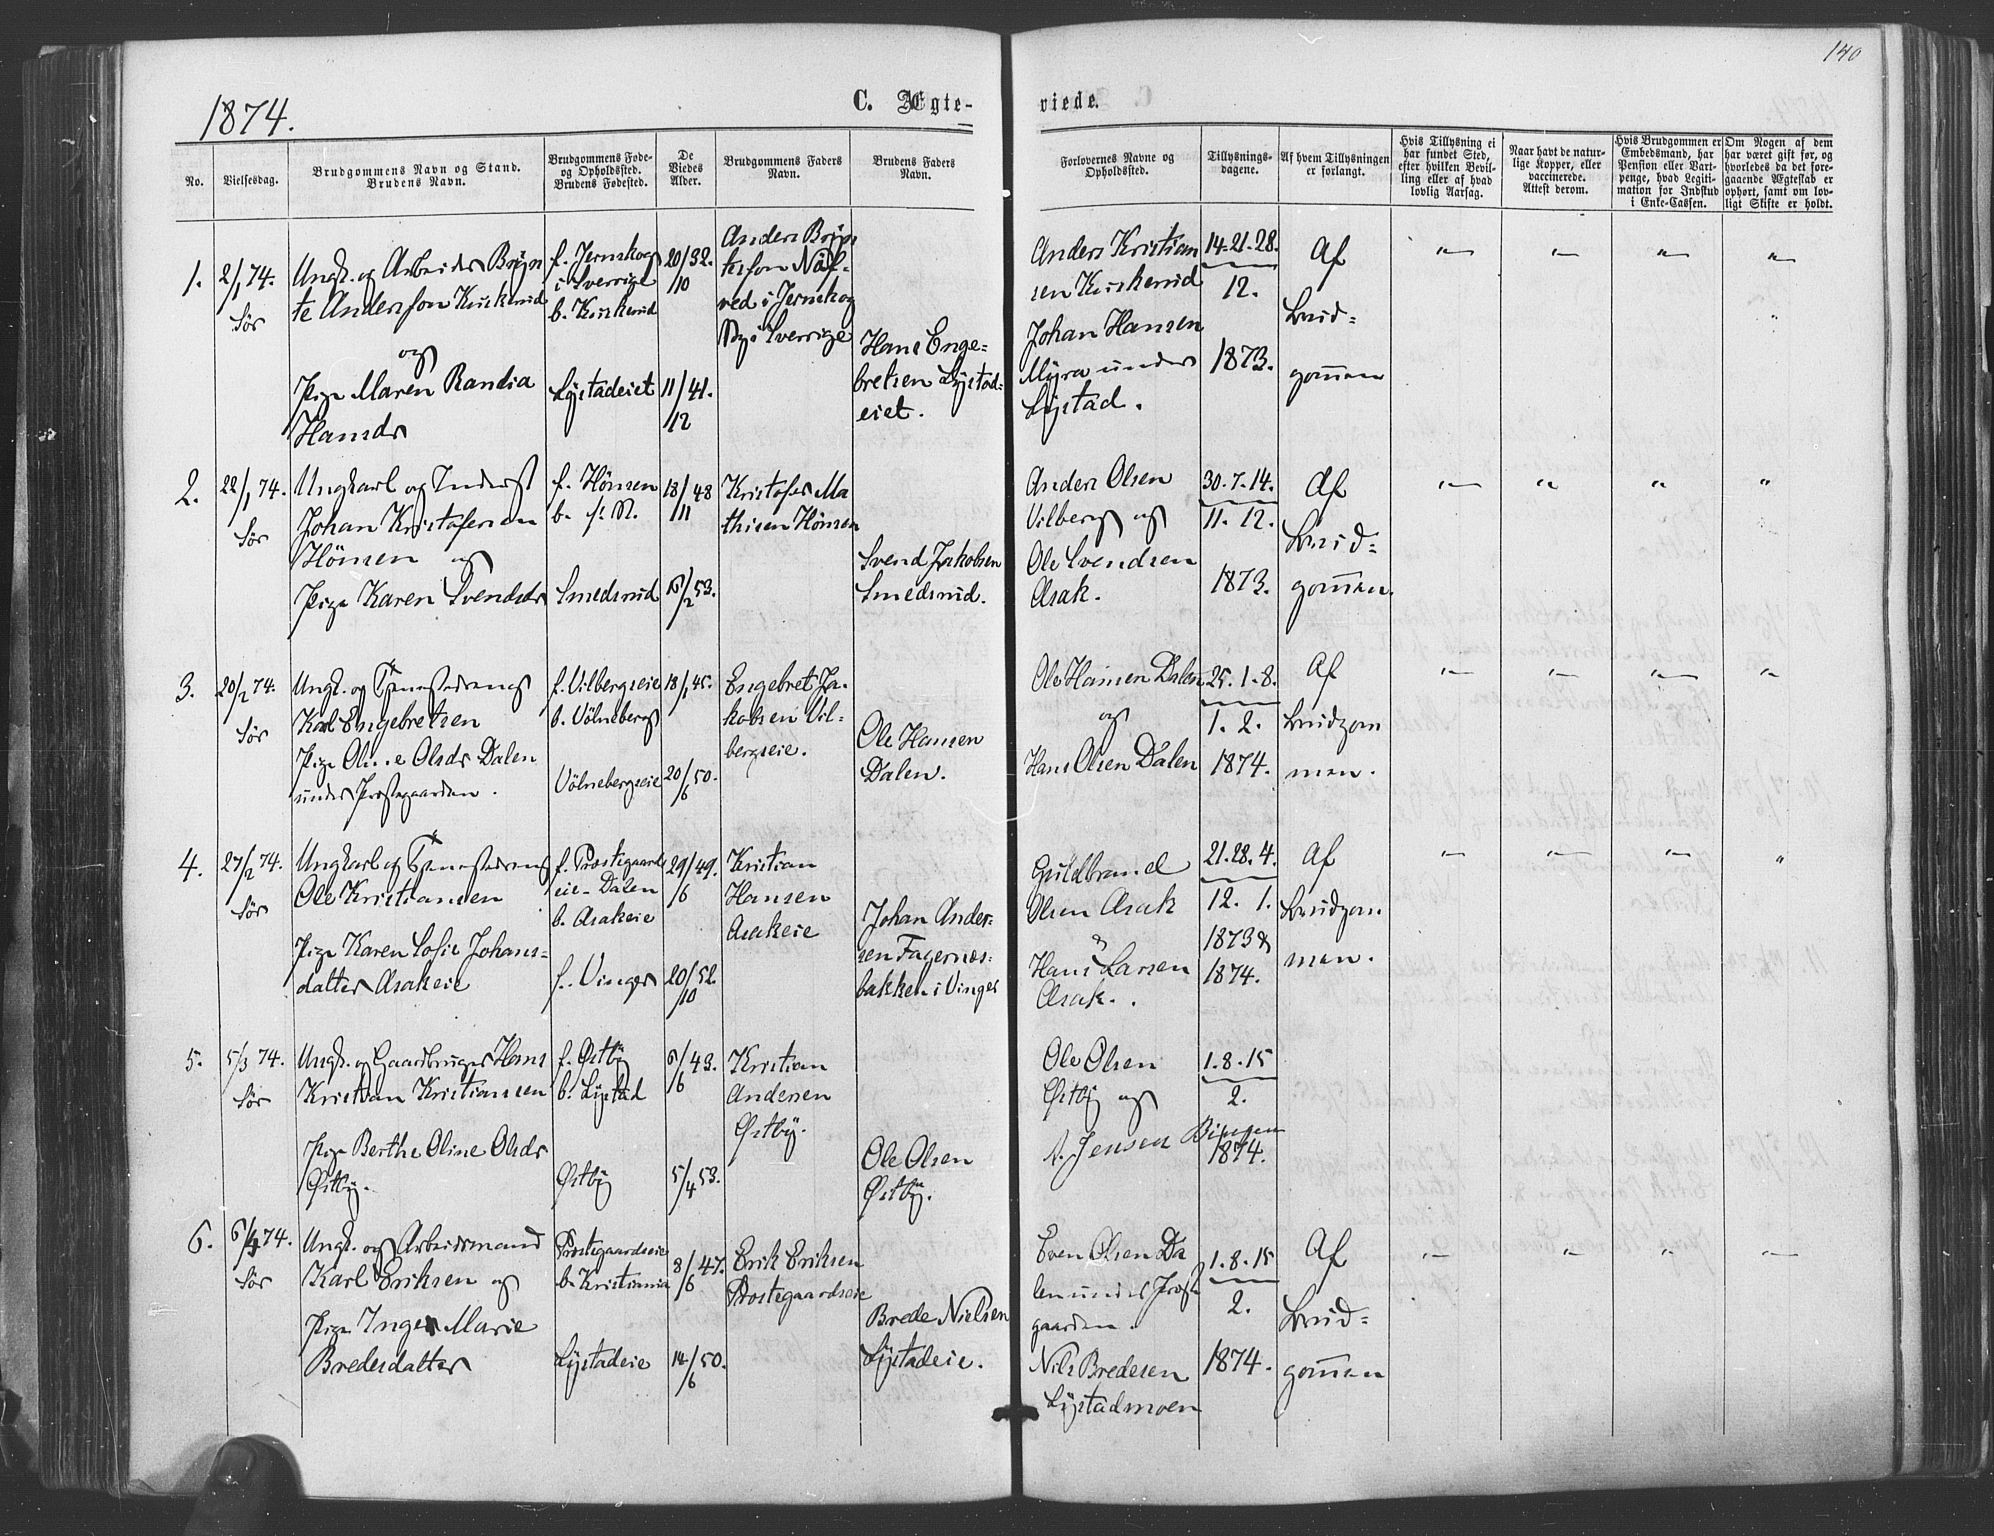 140
1874.
C. Ægte-
viede.
No.
Vielsesdag.
Brudgommens Navn og Stand.
Brudens Navn.
Brudgommens Føde-
og Opholdssted.
Brudens Fødested.
De
Viedes
Alder.
Brudgommens Faders
Navn.
Brudens Faders
Navn.
Forlovernes Navne og
Opholdssted.
Tillysnings-
dagene.
Af hvem Tillysningen
er forlangt.
Hvis Tillysning ei
har fundet Sted,
efter hvilken Bevil-
ling eller af hvad
lovlig Aarsag.
Naar havt de natur-
lige Kopper, eller
vaccinerede.
Attest derom.
Hvis Brudgommen er
Embedsmand, har
Pension eller Vart-
penge, hvad Legiti-
mation for Indskud
i Enke-Cassen.
Om Nogen af dem
har været gift før, og
hvorledes da det fore-
gaaende Ægteskab er
ophørt, samt om lov-
ligt Skifte er holdt.
1.
2/1 74.
Sør
Ungk. og Arbeider Bryn
te Andersson Kuskerud
og
Pige Maren Randia
Hansdr
f. Jernskog
i Sverrige
b. Kuskerud
Lystadeiet
20/10 32.
11/12 41.
Anders Bryn
tesson
ved i Jernskog
i Sverrige
Hans Enge-
bretsen Lystad-
eiet.
Anders Kristian
sen Kuskerud
Johan Hansen
Myra under
Lystad.
14-21-28.
12.
1873.
Af
Brud-
gommen
2.
22/1 74.
Sør
Ungkarl og Inderst
Johan Kristofersen
Hönsen og
Pige Karen Svendsdr
f. Hönsen
b. s. St.
Smedsrud
18/11 48
15/2 53.
Kristofer Ma
thisen Hönsen
Svend Jakobsen
Smedsrud.
Anders Olsen
Vilberg og
Ole Svendsen
Asak.
30-7-14.
11. 12.
1873.
Af
Brud-
gommen.
3.
20/2 74.
Sør
Ungk. og Tjenestedreng
Karl Engebretsen
Pige Oline Olsdr Dalen
under Præstegaarden.
f. Vilbergseie
b. Völneberg
Völnebergseie
18/1 45.
20/6 50.
Engebret Ja-
kobsen Vil-
bergseie.
Ole Hansen
Dalen.
Ole Hansen Dalen
og
Hans Olsen Dalen
25-1-8.
1. 2.
1874.
Af
Brudgom
men.
4.
27/2 74.
Sør
Ungkarl og Tjenestedreng
Ole Kristiansen
Pige Karen Sofie Johans-
datter Asakeie
f. Præstegaard
eie-Dalen
b. Asakeie
f. Vinger
29/6 49.
20/10 52.
Kristian
Hansen
Asakeie
Johan Ander-
sen Fagernæs-
bakken i Vinger
Guldbrand
Olsen Asak
&
Hans Larsen
Asak.
21-28-4.
12. 1.
1873 &
1874.
Af
Brudgom
men.
5.
5/3 74.
Sør
Ungk. og Gaardbruger Hans
Kristian Kristiansen
Pige Berthe Oline Olsdr
Østby.
f. Østby
b. Lystad
Østby
6/6 43.
5/4 53.
Kristian
Andersen
Østby.
Ole Olsen
Østby.
Ole Olsen
Østby og
A. Jensen Bingen
1-8-15
2.
1874.
6.
6/3 74.
Sør
Ungk. og Arbeidsmand
Karl Eriksen og
Pige Inger Marie
Bredesdatter
Præstegaardseie
b. Kristiania
Lystadeie
8/6 47.
14/6 50.
Erik Eriksen
Præstegaardseie
Brede Nielsen
Lystadeie.
Even Olsen Da
len under Præste
gaarden.
Nils Bredesen
Lystadmoen
1-8-15
2.
1874.
Af
Brud-
gommen